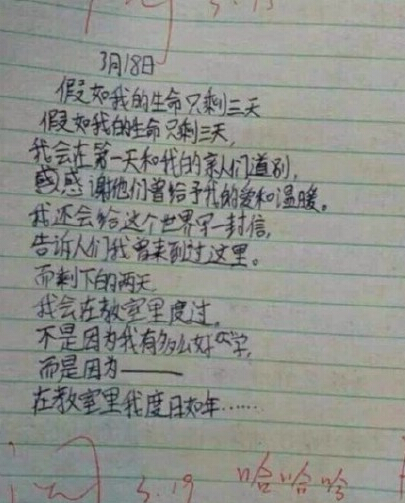 3月18日
假如我的生命只剩三天
假如我的生命只剩三天,
我会在第一天和我的亲人们道别,
感谢他们曾给予我的爱和温暖。
我还会给这个世界写一封信,
告诉人们我曾来到过这里。
而剩下的两天
我会在教室里度过,
不是因为我有多么好学,
而是因为——
在教室里我度日如年……
3.19 哈哈哈